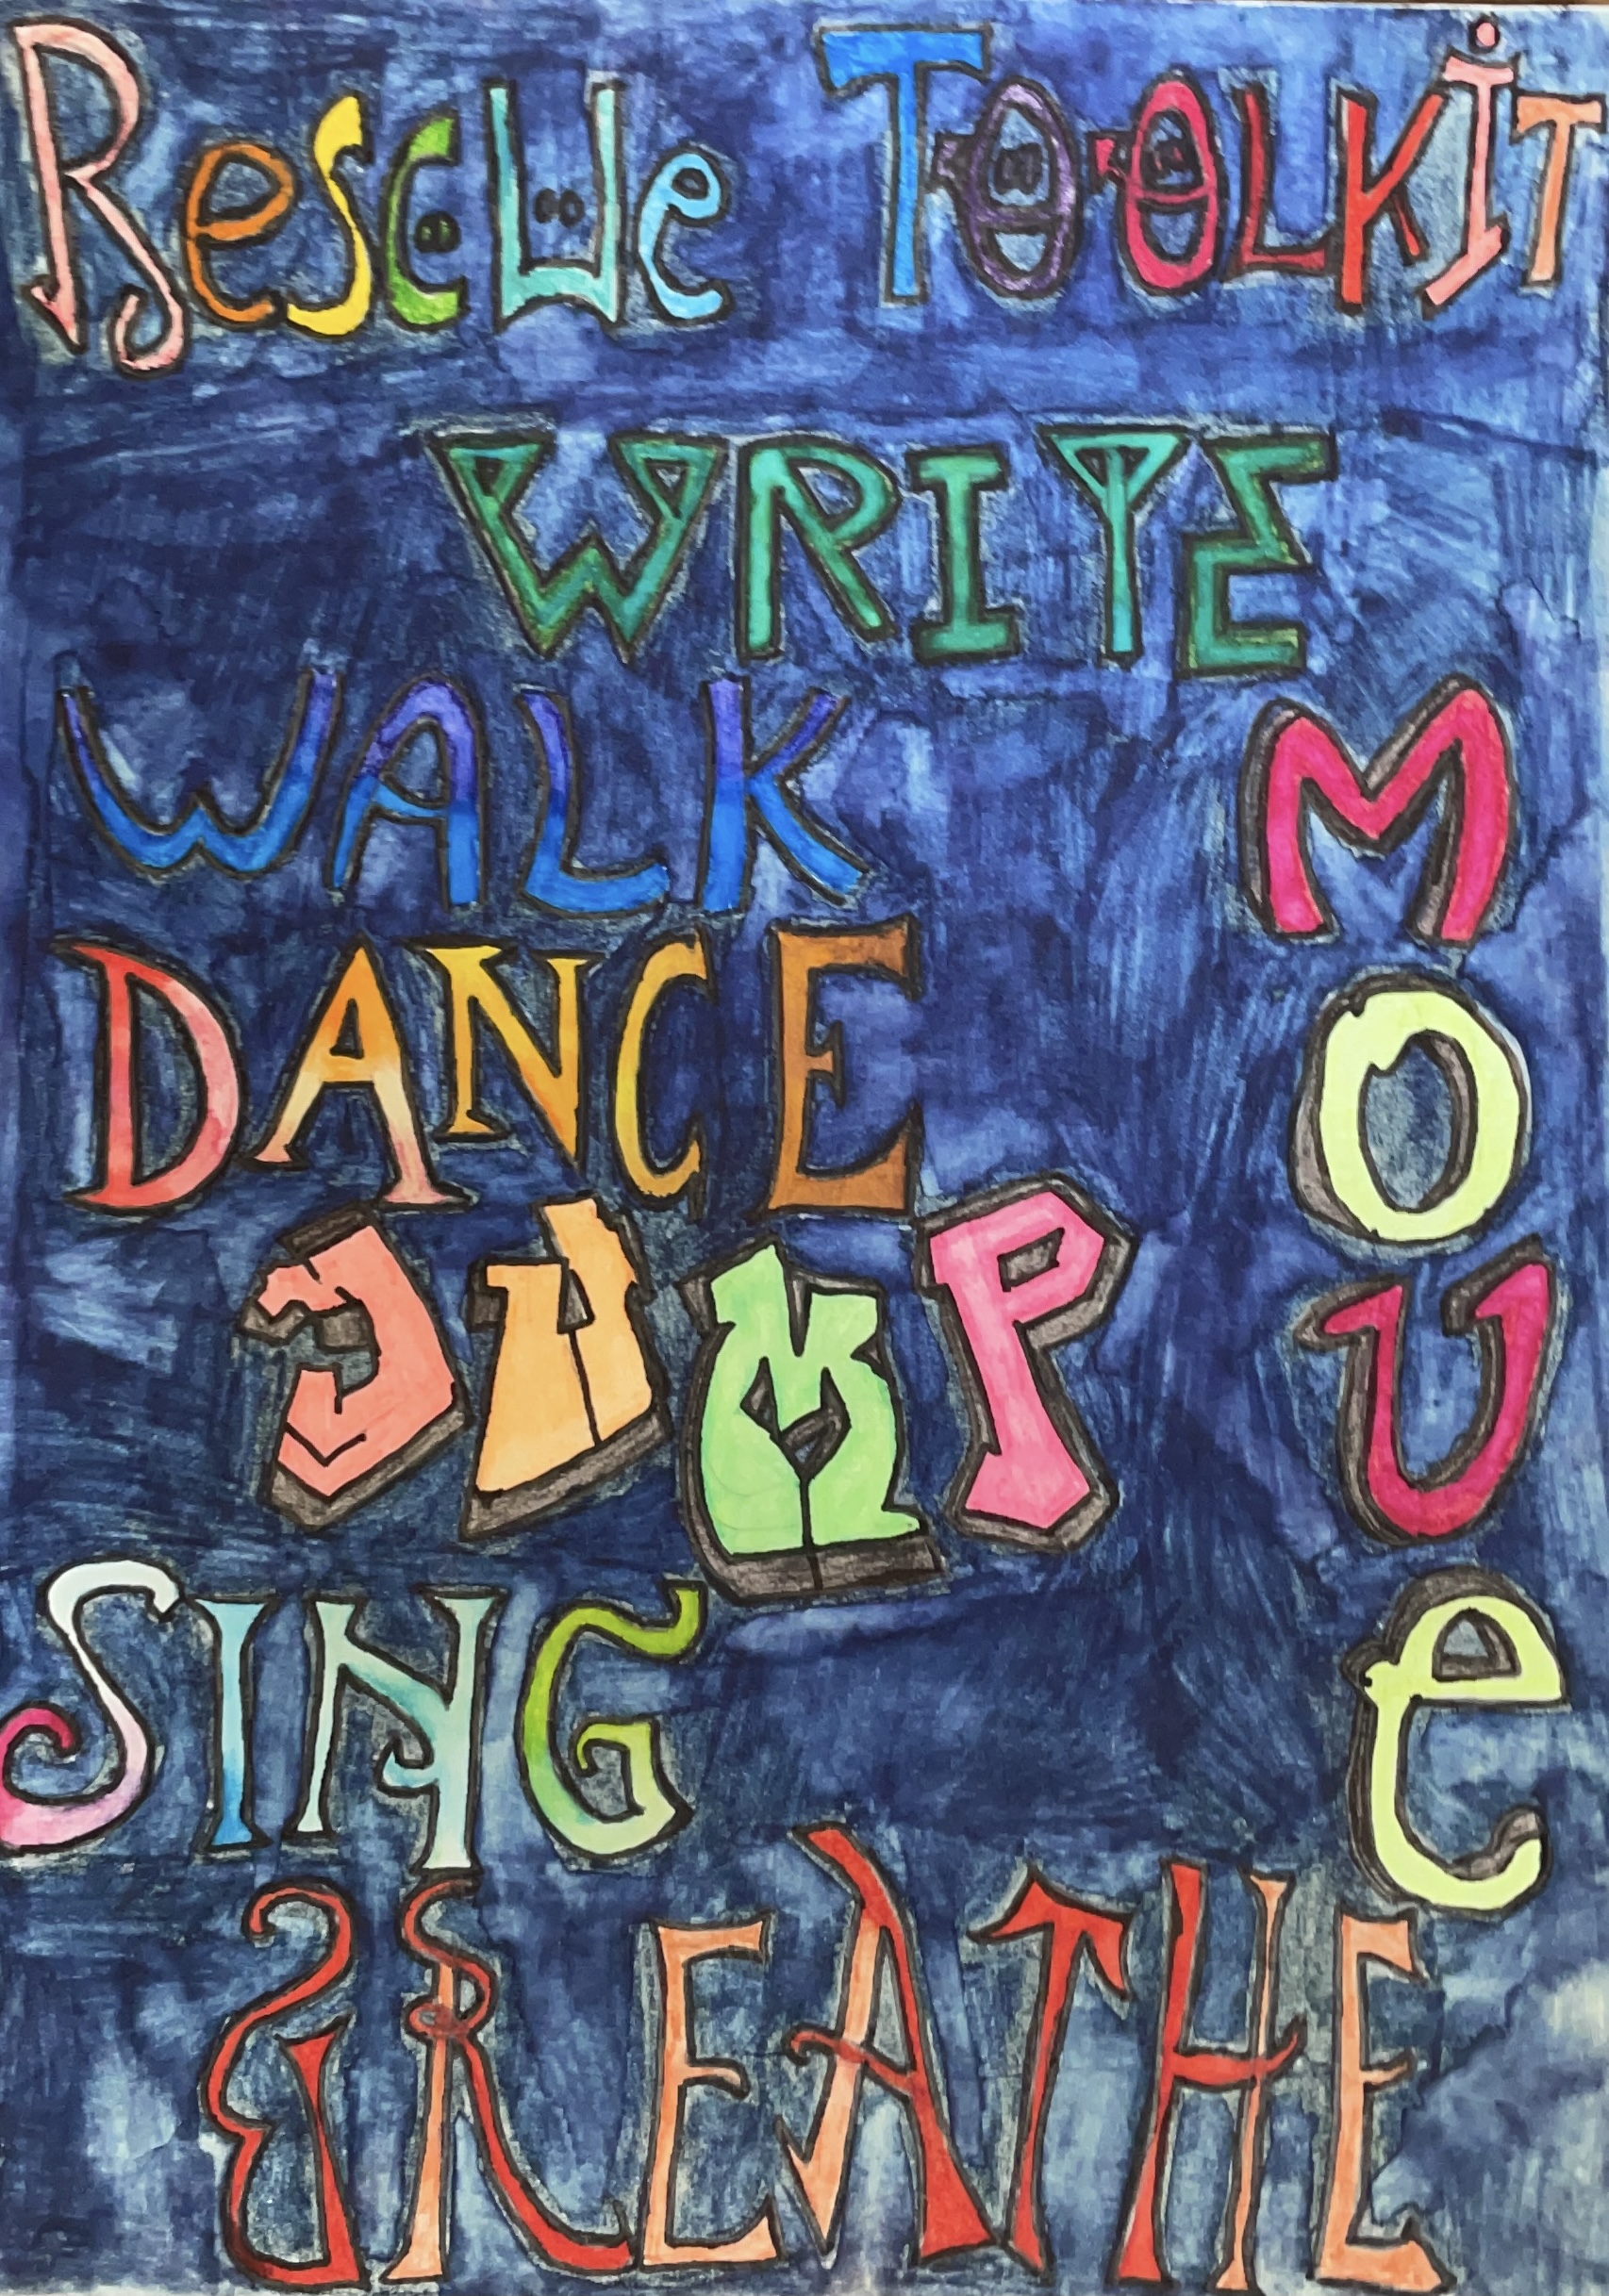 Rescue TOOLKiT
WRITE
WALK
DANCE
JUMP
SING
BREATHE
MOVe